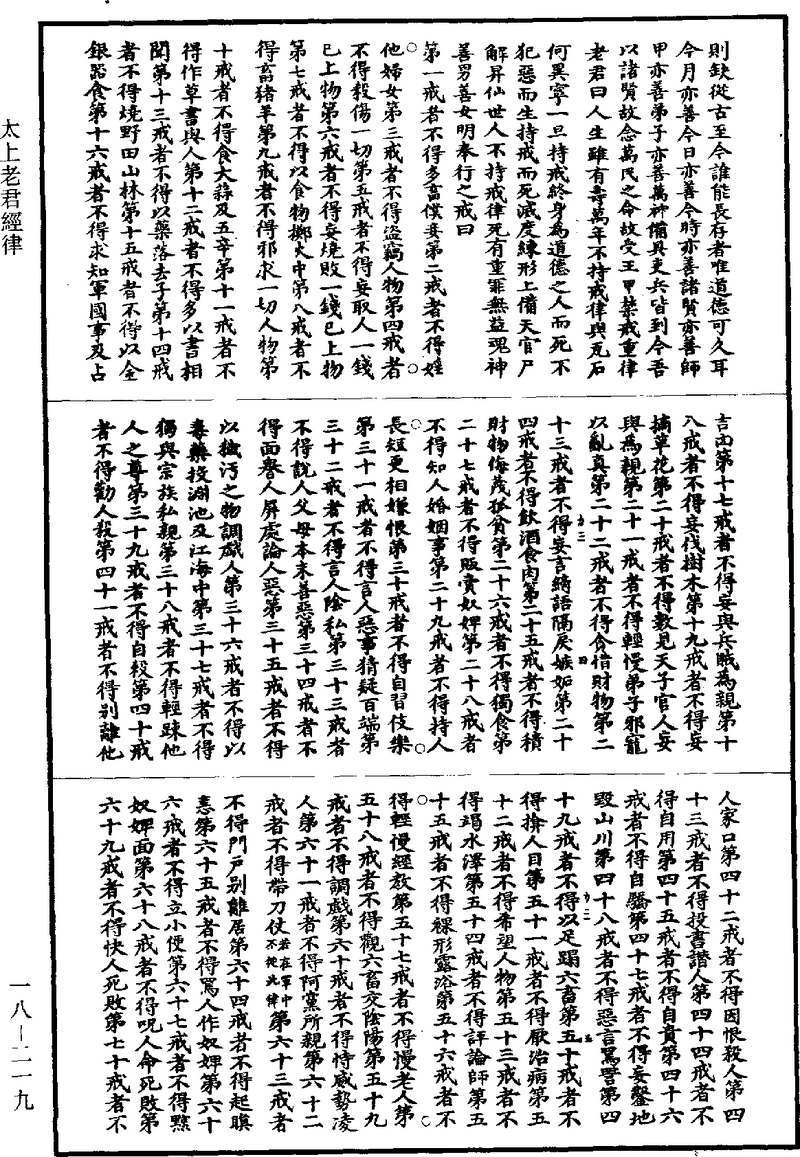 則缺從古至今誰能長存者唯道德可久耳
今月亦善今日亦善今時亦善諸賢亦善師
甲亦善弟子亦善萬神備具吏兵皆到今吾
以諸賢故念萬民之命故受王甲禁戒重律
老君曰人生雖有壽萬年不持戒律與瓦石
何異寧一旦持戒終身為道德之人而死不
犯惡而生持戒而死滅度練形上備天官尸
解昇仙世人不持戒律死有重罪無益魂神
善男善女明奉行之戒曰
第一戒者不得多畜僕妾第二戒者不得婬
他婦女第三戒者不得盜竊人物第四戒者
不得殺傷一切第五戒者不得妄取人一錢
已上物第六戒者不得妄燒敗一錢已上物
第七戒者不得以食物擲火中第八戒者不
得畜猪羊第九戒者不得邪求一切人物第
十戒者不得食大蒜及五辛第十一戒者不
得作草書與人第十二戒者不得多以書相
聞第十三戒者不得以藥落去子第十四戒
者不得燒野田山林第十五戒者不得以金
銀器食第十六戒者不得求知軍國事及占
吉凶第十七戒者不得妄與兵賊為親第十
八戒者不得妄伐樹木第十九戒者不得妄
摘草花第二十戒者不得數見天子官人妄
與為親第二十一戒者不得輕慢弟子邪寵
以亂真第二十二戒者不得貪惜財物第二
十三戒者不得妄言綺語隔戾嫉妬第二十
四戒者不得飲酒食肉第二十五戒者不得積
財物侮蔑孤貧第二十六戒者不得獨食第
二十七戒者不得販賣奴婢第二十八戒者
不得知人婚姻事第二十九戒者不得持人
長短更相嫌恨第三十戒者不得自習伎樂
第三十一戒者不得言人惡事猜疑百端第
三十二戒者不得言人陰私第三十三戒者
不得說人父母本末善惡第三十四戒者不
得面譽人屏處論人惡第三十五戒者不得
以穢污之物調戲人第三十六戒者不得以
毒藥投淵池及江海中第三十七戒者不得
獨與宗族私親第三十八戒者不得輕疎他
人之尊第三十九戒者不得自殺第四十戒
者不得勸人殺第四十一戒者不得別離他
人家口第四十二戒者不得因恨殺人第四
十三戒者不得投書譖人第四十四戒者不
得自用第四十五戒者不得自貴第四十六
戒者不得自驕第四十七戒者不得妄鑿地
毀山川第四十八戒者不得惡言罵詈第四
十九戒者不得以足蹋六畜第五十戒者不
得揜人目第五十一戒者不得厭治病第五
十二戒者不得希望人物第五十三戒者不
得竭水澤第五十四戒者不得評論師第五
十五戒者不得裸形露浴第五十六戒者不
得輕慢經教第五十七戒者不得慢老人第
五十八戒者不得觀六畜交陰陽第五十九
戒者不得調戲第六十戒者不得恃威勢凌
人第六十一戒者不得阿黨所親第六十二
戒者不得帶刀仗若在軍中不從此律第六十三戒者
不得門戶別離居第六十四戒者不得起瞋
恚第六十五戒者不得罵人作奴婢第六十
六戒者不得立小便第六十七戒者不得黥
奴婢面第六十八戒者不得呪人命死敗第
六十九戒者不得快人死敗第七十戒者不
太上老君經律
一八—二一九